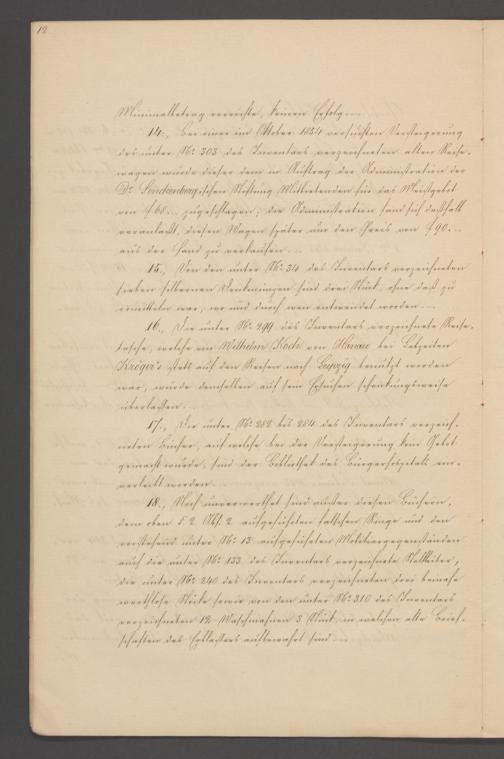 12
Minimalbetrag erreichte, keinen Erfolg.
14., Bei einer im Oktober 1854 versuchten Versteigerung
des unter No. 303 des Inventars verzeichneten alten Reise-
wagens wurde dieser dem im Auftrag der Administration der
Dr. Senckenbergischen Stiftung Mitbietenden für das Meistgebot
von f 68... zugeschlagen; die Administration fand sich deshalb
veranlaßt, diesen Wagen später um den Preis von f 90...
aus der Hand zu verkaufen.
15., Von den unter No. 34 des Inventars verzeichneten
sieben silbernen Denkmünzen sind drei Stück, ohne daß zu
ermitteln war, wo und durch wen entwendet worden.
16., Die unter No. 299 des Inventars verzeichnete Reise-
tasche, welche von Wilhelm Koch von Hanau bei Lebzeiten
Kröger's stets auf den Reisen nach Leipzig benutzt worden
war, wurde demselben auf sein Ersuchen schenkungsweise
überlassen.
17., Die unter No. 282 bis 284 des Inventars verzeich-
neten Bücher, auf welche bei der Versteigerung kein Gebot
gemacht wurde, sind der Bibliothek des Bürgerhospitals ein-
verleibt worden.
18., Noch unverwerthet sind außer diesen Büchern,
dem oben § 2 Abs. 2 aufgeführten falschen Ringe und den
vorstehend unter No. 13 aufgeführten Mobiliargegenständen
auch die unter No. 133 des Inventars verzeichnete Stellleiter,
die unter No. 240 des Inventars verzeichneten drei beinahe
werthlose Stücke sowie von den unter No. 310 des Inventars
verzeichneten 12 Waschmahnen 3 Stück, in welchen alte Brief-
schaften des Erblassers aufbewahrt sind.